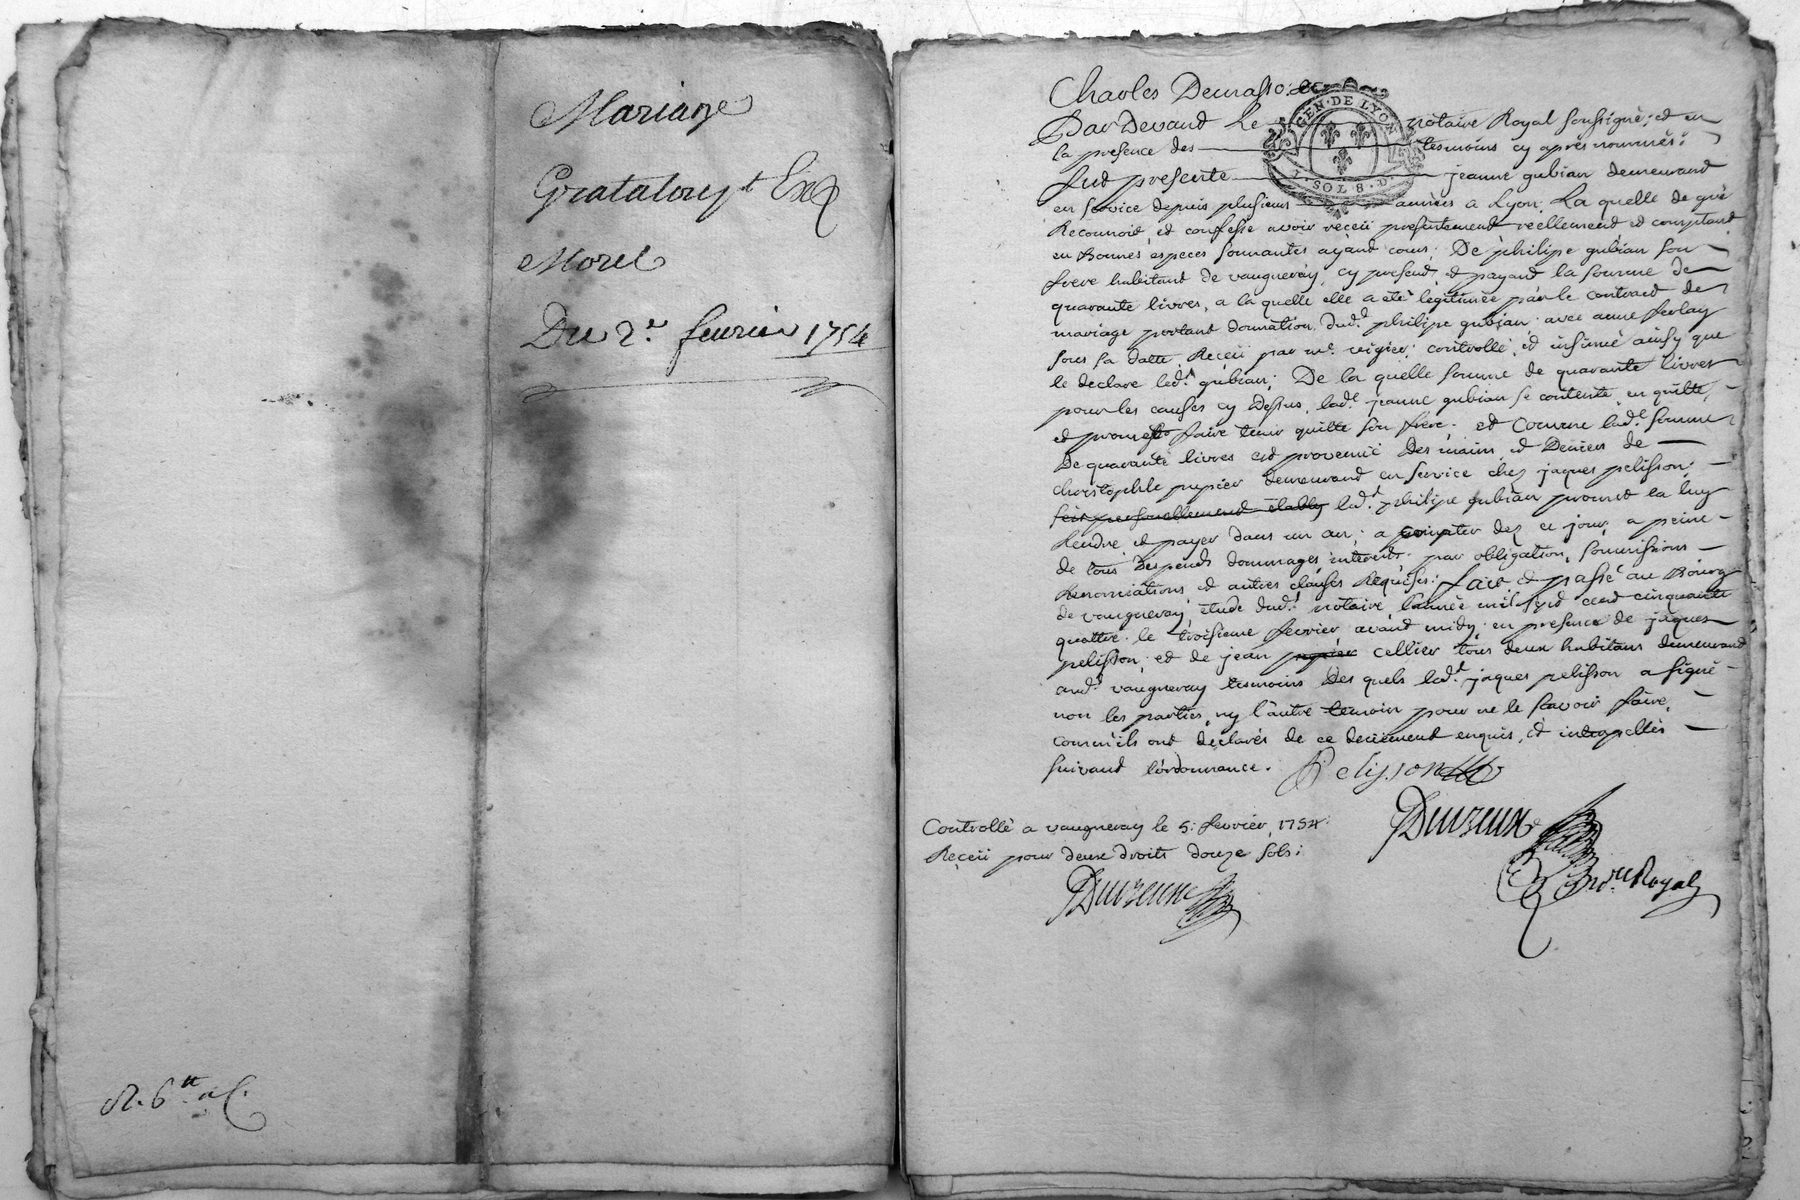 Mariage
Gratalou et Exp
Morel
Du 2e. fevrier 1754
R. 6tt
Charles Deurasse
GEN · DE LYON
SOLS · D
Par Devand Le notaire Royal soussigné; et en
la presence des tesmoins cy apres nommés;
fut presente jeanne gubian demeurand
en service depuis plusieurs années a Lyon; La quelle de gré
Reconnoit, et confesse avoir receü presentement reellement et comptand
en Bonnes especes sonnantes ayand cour; De philipe gubian son
frere habitand de vaugneray, cy present, et payand la somme de
quarante livres, a la quelle elle a eté legitimée par le contract de
mariage portant donnation, dud.t philipe gubian; avec anne ferlay
sous sa datte, Receü par me. vigier; controllé, et insinué ainsy que
le declare led.t gubian; De la quelle somme de quarante livres
pour les causes cy Dessus, lad.e jeanne gubian se contente, en quitte,
et promet faire tenir quitte son frere. et Comme lad.e somme
De quarante livres est provenüe Des mains, et Deniers de
christophle pupier demeurand en service chez jaques pelisson;
soit personellement etably led.t philipe gubian promet la luy
Rendre et payer dans un an; a compter dez ce jour, a peine
de tous despends dommages, interests. par obligation, soumissions
Renonciations et autres clauses Requises: fait et passé au Bourg
de vaugneray, etude dud.t notaire, l'année mil sept cent cinquante
quattre. le troisieme fevrier, avand midy. en presence de jaques
pelisson; et de jean pupier cellier tous deux habitans demeurand
aud.t vaugneray tesmoins Des quels led.t jaques pelisson a signé
non les parties, ny l'autre temoin pour ne le scavoir faire,
comm'ils ont declarés de ce deüement enquis, et interpellés
suivand l'ordonnance. Pelisson
Controllé a vaugneray le 5: fevrier, 1754:
Receü pour deux droits douze sols:
Duvzeux
Duvzeux
n.re Royal